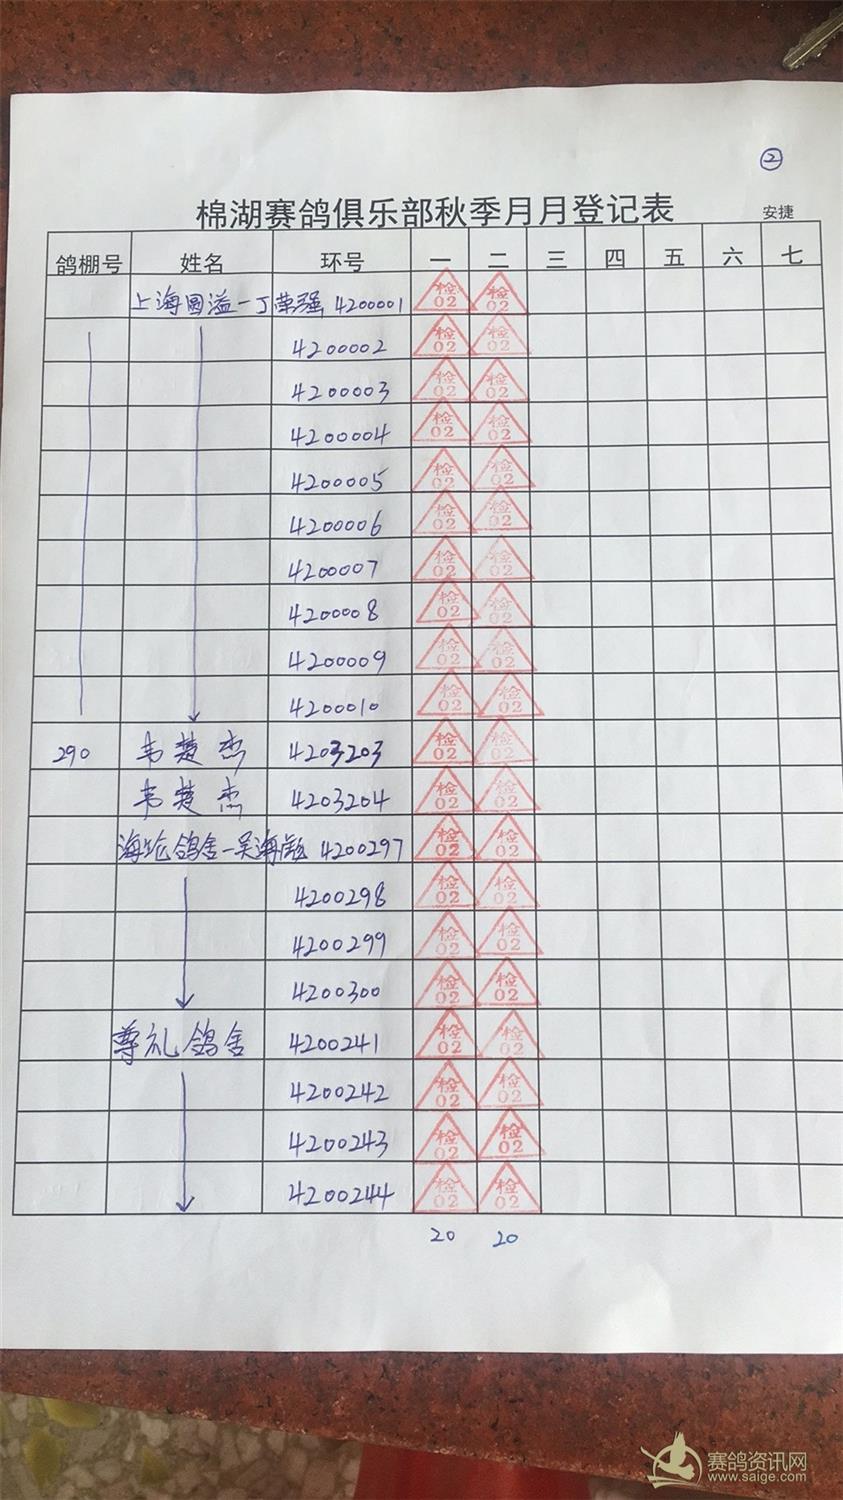 ②
棉湖赛鸽俱乐部秋季月月登记表 安捷
鸽棚号 姓名 环号 一 二 三 四 五 六 七
上海圆溢-丁荣强 4200001 检02 检02
4200002 检02 检02
4200003 检02 检02
4200004 检02 检02
4200005 检02 检02
4200006 检02 检02
4200007 检02 检02
4200008 检02 检02
4200009 检02 检02
4200010 检02 检02
290 韦楚杰 4203203 检02 检02
韦楚杰 4203204 检02 检02
海纶鸽舍-吴海彪 4200297 检02 检02
4200298 检02 检02
4200299 检02 检02
4200300 检02 检02
尊礼鸽舍 4200241 检02 检02
4200242 检02 检02
4200243 检02 检02
4200244 检02 检02
20 20
赛鸽资讯网
www.saige.com